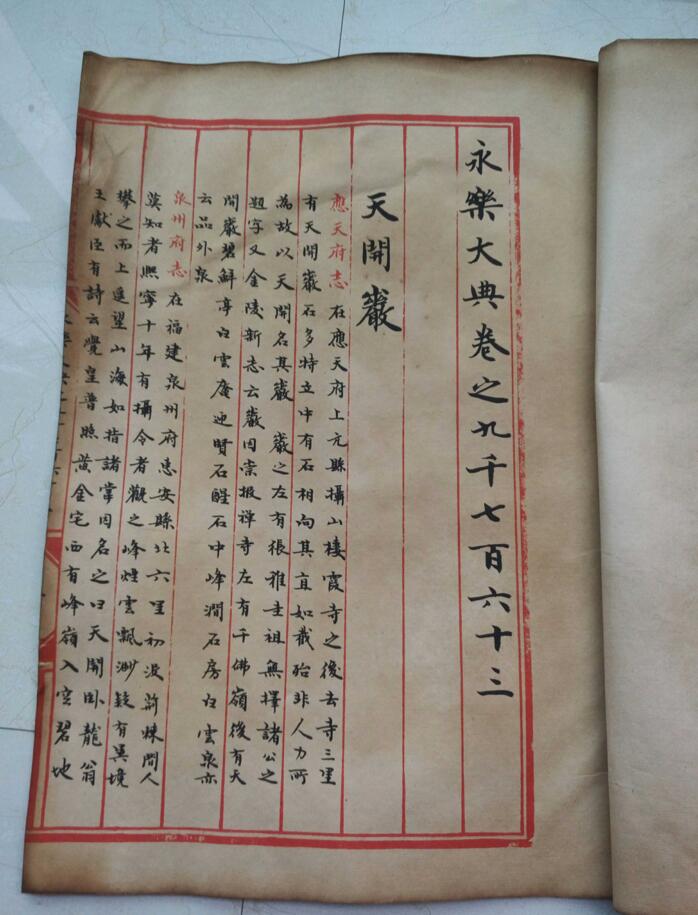 永樂大典卷之九千七百六十三
天開巖
應天府志 在應天府上元縣攝山棲霞寺之後去寺三里
有天開巖石多特立中有石相向其直如截殆非人力所
為故以天開名其巖 巖之左有張雅圭祖無擇諸公之
題字又金陵新志云巖因崇报禅寺左有千佛嶺後有天
開巖碧鮮亭白雲庵迎賢石醒石中峰澗石房白雲泉亦
云品外泉
泉州府志 在福建泉州府惠安縣北六里初没荊棘間人
莫知者熙寧十年有攝令者觀之峰煙雲飄渺疑有異境
攀之而上遥望山海如指諸掌因名之曰天開卧龍翁
王獻臣有詩云覺皇普照黄金宅西有峰嶺入空碧地